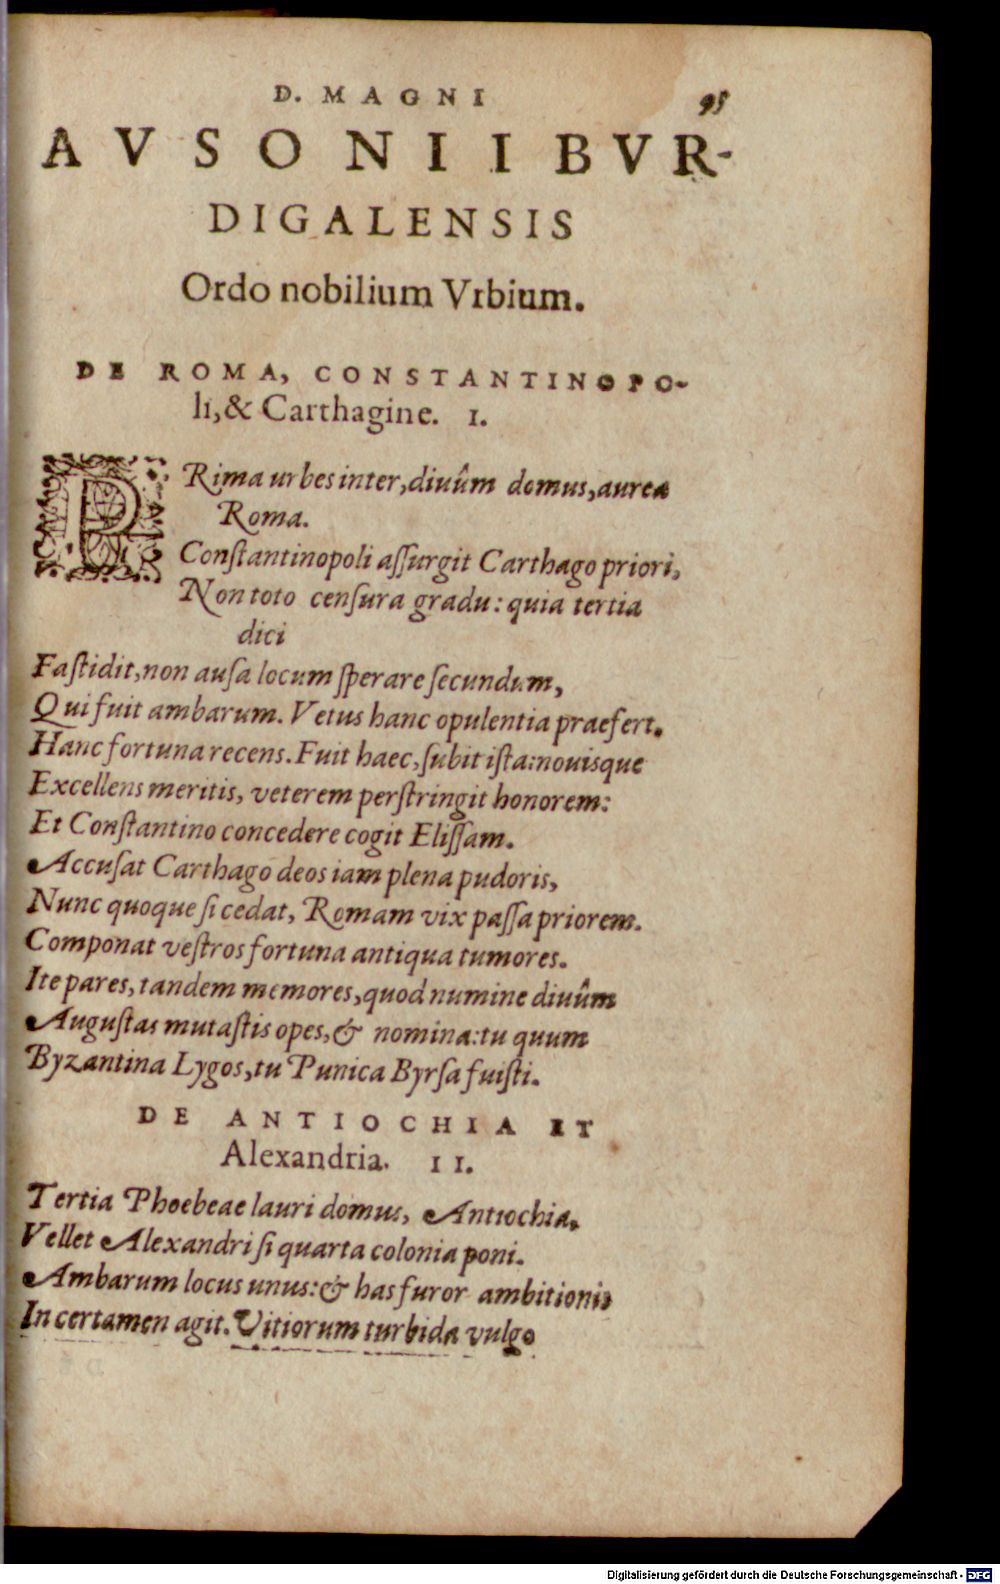 D. MAGNI
95
AVSONII BVR-
DIGALENSIS
Ordo nobilium Vrbium.
DE ROMA, CONSTANTINOPO-
li, & Carthagine. I.
PRima urbes inter, diuûm domus, aurea
Roma.
Conſtantinopoli aſſurgit Carthago priori,
Non toto cenſura gradu: quia tertia
dici
Faſtidit, non auſa locum ſperare ſecundum,
Qui fuit ambarum. Vetus hanc opulentia praefert.
Hanc fortuna recens. Fuit haec, ſubit iſta: nouisque
Excellens meritis, veterem perſtringit honorem:
Et Conſtantino concedere cogit Eliſſam.
Accuſat Carthago deos iam plena pudoris,
Nunc quoque ſi cedat, Romam vix paſſa priorem.
Componat veſtros fortuna antiqua tumores.
Ite pares, tandem memores, quod numine diuûm
Auguſtas mutaſtis opes, & nomina: tu quum
Byzantina Lygos, tu Punica Byrſa fuiſti.
DE ANTIOCHIA ET
Alexandria. II.
Tertia Phoebeae lauri domus, Antiochia,
Vellet Alexandri ſi quarta colonia poni.
Ambarum locus unus: & has furor ambitionis
In certamen agit. Vitiorum turbida vulgo
Digitalisierung gefördert durch die Deutsche Forschungsgemeinschaft - DFG